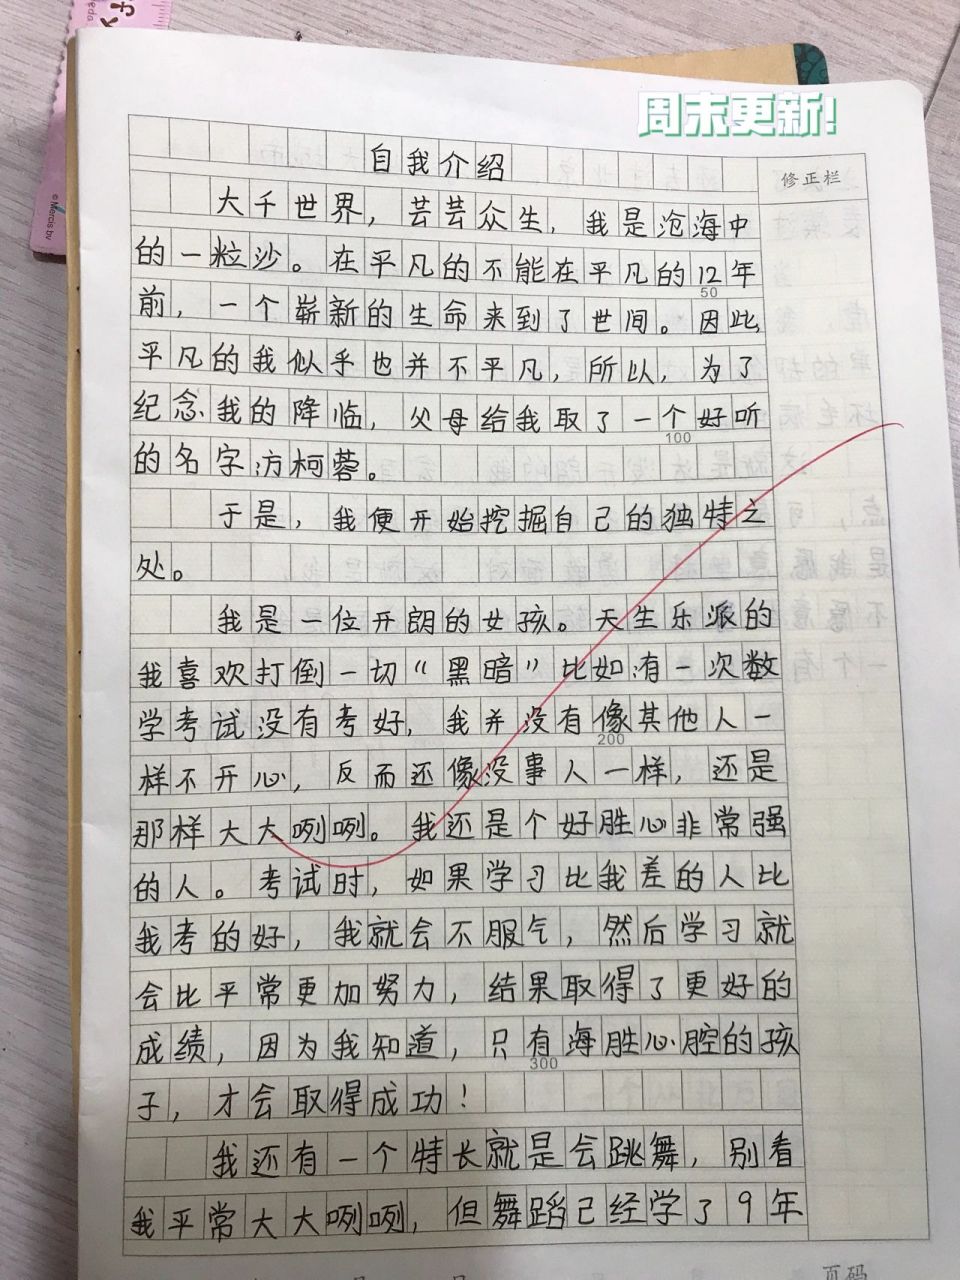 周末更新!
自我介绍
修正栏
大千世界，芸芸众生，我是沧海中
的一粒沙。在平凡的不能在平凡的12年
50
前，一个崭新的生命来到了世间。因此
平凡的我似乎也并不平凡，所以，为了
纪念我的降临，父母给我取了一个好听
100
的名字:方柯蓉。
于是，我便开始挖掘自己的独特之
处。
我是一位开朗的女孩。天生乐派的
我喜欢打倒一切“黑暗”比如:有一次数
学考试没有考好，我并没有像其他人一
200
样不开心，反而还像没事人一样，还是
那样大大咧咧。我还是个好胜心非常强
的人。考试时，如果学习比我差的人比
我考的好，我就会不服气，然后学习就
会比平常更加努力，结果取得了更好的
成绩，因为我知道，只有海胜心腔的孩
300
子，才会取得成功！
我还有一个特长就是会跳舞，别看
我平常大大咧咧，但舞蹈已经学了9年
页码